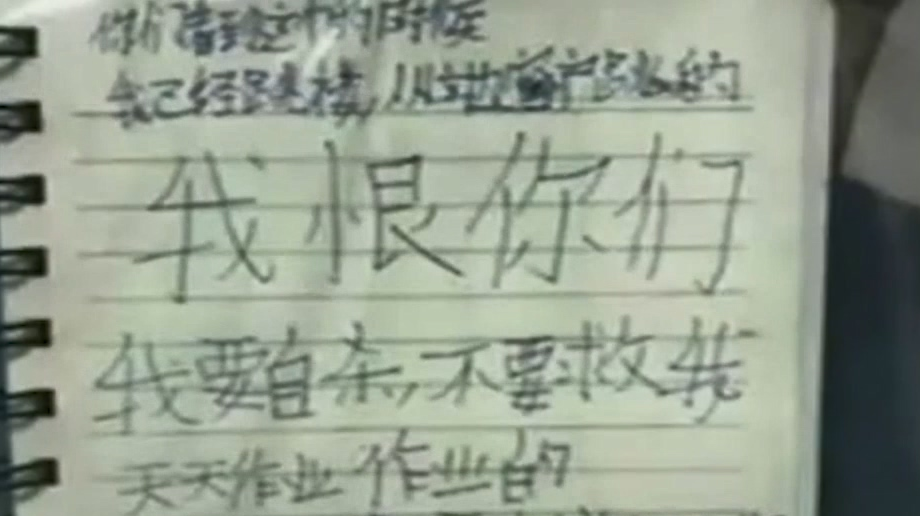 你们看到这个的时候
我已经跳楼,从
我恨你们
我要自杀,不要救我
天天作业作业的